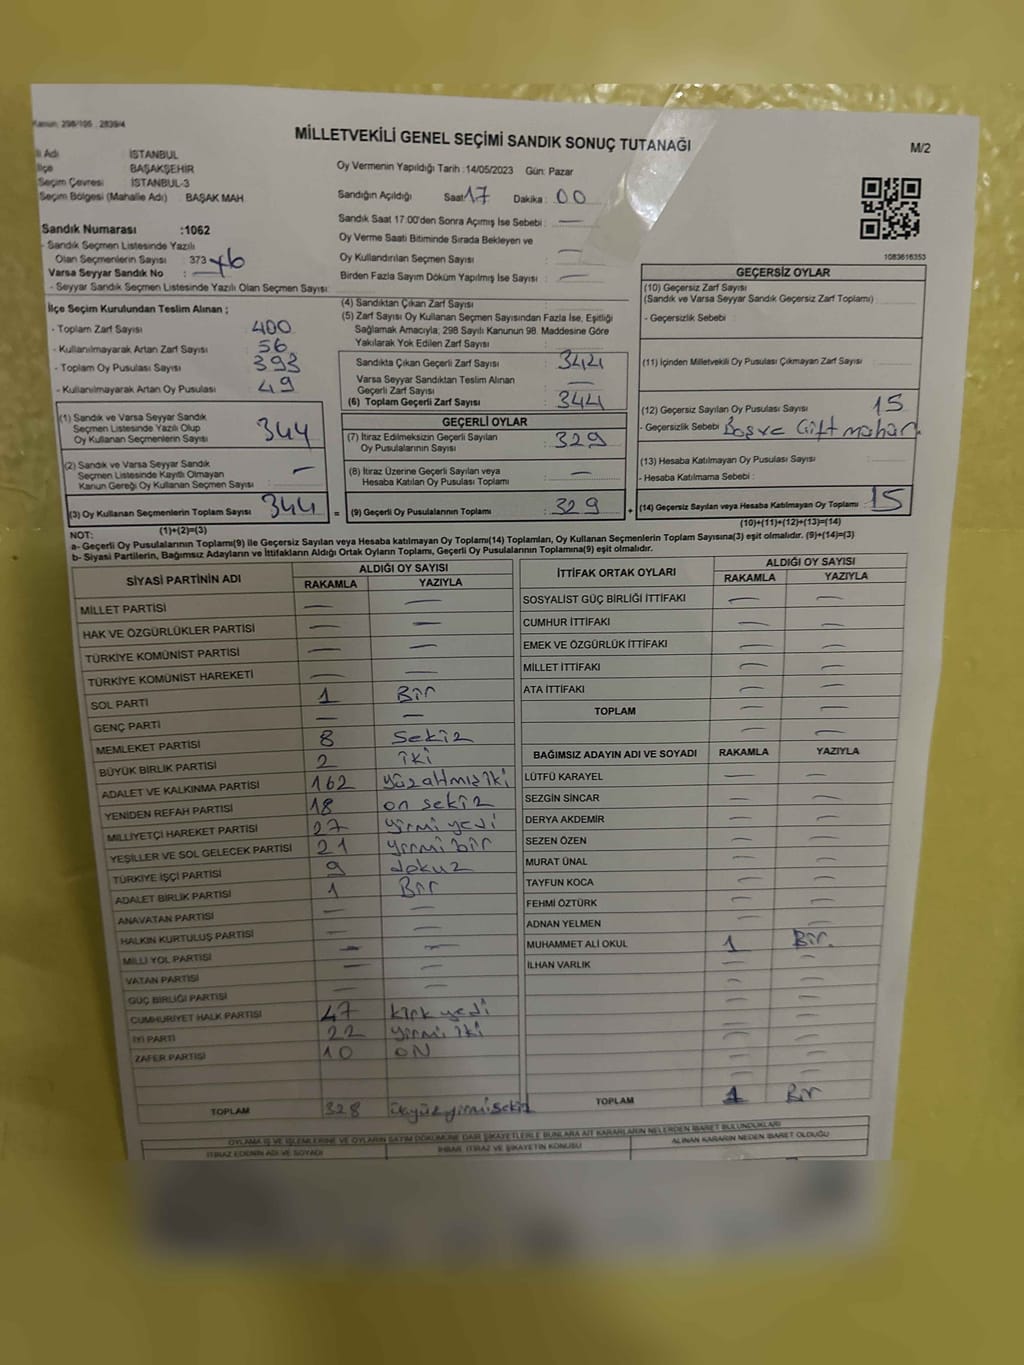 Kanun: 298/105 : 2839/4
MİLLETVEKİLİ GENEL SEÇİMİ SANDIK SONUÇ TUTANAĞI
M/2
İl Adı İSTANBUL
İlçe BAŞAKŞEHİR
Seçim Çevresi İSTANBUL-3
Seçim Bölgesi (Mahalle Adı) BAŞAK MAH.
Sandık Numarası :1062
- Sandık Seçmen Listesinde Yazılı
Olan Seçmenlerin Sayısı : 373
Varsa Seyyar Sandık No :
- Seyyar Sandık Seçmen Listesinde Yazılı Olan Seçmen Sayısı:
Oy Vermenin Yapıldığı Tarih :14/05/2023 Gün: Pazar
Sandığın Açıldığı Saat 17 Dakika : 00
Sandık Saat 17:00'den Sonra Açımış İse Sebebi : —
Oy Verme Saati Bitiminde Sırada Bekleyen ve
Oy Kullandırılan Seçmen Sayısı : —
Birden Fazla Sayım Döküm Yapılmış İse Sayısı : —
1083616353
İlçe Seçim Kurulundan Teslim Alınan ;
- Toplam Zarf Sayısı : 400
- Kullanılmayarak Artan Zarf Sayısı : 56
- Toplam Oy Pusulası Sayısı : 393
- Kullanılmayarak Artan Oy Pusulası : 49
(1) Sandık ve Varsa Seyyar Sandık
Seçmen Listesinde Yazılı Olup
Oy Kullanan Seçmenlerin Sayısı : 344
(2) Sandık ve Varsa Seyyar Sandık
Seçmen Listesinde Kayıtlı Olmayan
Kanun Gereği Oy Kullanan Seçmen Sayısı : —
(3) Oy Kullanan Seçmenlerin Toplam Sayısı : 344
(1)+(2)=(3)
(4) Sandıktan Çıkan Zarf Sayısı :
(5) Zarf Sayısı Oy Kullanan Seçmen Sayısından Fazla İse, Eşitliği
Sağlamak Amacıyla, 298 Sayılı Kanunun 98. Maddesine Göre
Yakılarak Yok Edilen Zarf Sayısı :
Sandıkta Çıkan Geçerli Zarf Sayısı : 344
Varsa Seyyar Sandıktan Teslim Alınan
Geçerli Zarf Sayısı : —
(6) Toplam Geçerli Zarf Sayısı : 344
GEÇERLİ OYLAR
(7) İtiraz Edilmeksizin Geçerli Sayılan
Oy Pusulalarının Sayısı : 329
(8) İtiraz Üzerine Geçerli Sayılan veya
Hesaba Katılan Oy Pusulası Toplamı : —
= (9) Geçerli Oy Pusulalarının Toplamı : 329 +
GEÇERSİZ OYLAR
(10) Geçersiz Zarf Sayısı
(Sandık ve Varsa Seyyar Sandık Geçersiz Zarf Toplamı) :
- Geçersizlik Sebebi :
(11) İçinden Milletvekili Oy Pusulası Çıkmayan Zarf Sayısı :
(12) Geçersiz Sayılan Oy Pusulası Sayısı : 15
- Geçersizlik Sebebi : Boş ve Çift mühür
(13) Hesaba Katılmayan Oy Pusulası Sayısı :
- Hesaba Katılmama Sebebi :
(14) Geçersiz Sayılan veya Hesaba Katılmayan Oy Toplamı : 15
(10)+(11)+(12)+(13)=(14)
NOT:
a- Geçerli Oy Pusulalarının Toplamı(9) ile Geçersiz Sayılan veya Hesaba katılmayan Oy Toplamı(14) Toplamları, Oy Kullanan Seçmenlerin Toplam Sayısına(3) eşit olmalıdır. (9)+(14)=(3)
b- Siyasi Partilerin, Bağımsız Adayların ve İttifakların Aldığı Ortak Oyların Toplamı, Geçerli Oy Pusulalarının Toplamına(9) eşit olmalıdır.
SİYASİ PARTİNİN ADI ALDIĞI OY SAYISI
RAKAMLA YAZIYLA
MİLLET PARTİSİ — —
HAK VE ÖZGÜRLÜKLER PARTİSİ — —
TÜRKİYE KOMÜNİST PARTİSİ — —
TÜRKİYE KOMÜNİST HAREKETİ — —
SOL PARTİ 1 Bir
GENÇ PARTİ — —
MEMLEKET PARTİSİ 8 Sekiz
BÜYÜK BİRLİK PARTİSİ 2 iki
ADALET VE KALKINMA PARTİSİ 162 yüzaltmışiki
YENİDEN REFAH PARTİSİ 18 on sekiz
MİLLİYETÇİ HAREKET PARTİSİ 27 yirmi yedi
YEŞİLLER VE SOL GELECEK PARTİSİ 21 yirmi bir
TÜRKİYE İŞÇİ PARTİSİ 9 dokuz
ADALET BİRLİK PARTİSİ 1 Bir
ANAVATAN PARTİSİ — —
HALKIN KURTULUŞ PARTİSİ — —
MİLLİ YOL PARTİSİ — —
VATAN PARTİSİ — —
GÜÇ BİRLİĞİ PARTİSİ — —
CUMHURİYET HALK PARTİSİ 47 kırk yedi
İYİ PARTİ 22 yirmi iki
ZAFER PARTİSİ 10 ON
TOPLAM 328 üçyüzyirmisekiz
İTTİFAK ORTAK OYLARI ALDIĞI OY SAYISI
RAKAMLA YAZIYLA
SOSYALİST GÜÇ BİRLİĞİ İTTİFAKI — —
CUMHUR İTTİFAKI — —
EMEK VE ÖZGÜRLÜK İTTİFAKI — —
MİLLET İTTİFAKI — —
ATA İTTİFAKI — —
TOPLAM — —
BAĞIMSIZ ADAYIN ADI VE SOYADI RAKAMLA YAZIYLA
LÜTFÜ KARAYEL — —
SEZGİN SİNCAR — —
DERYA AKDEMİR — —
SEZEN ÖZEN — —
MURAT ÜNAL — —
TAYFUN KOCA — —
FEHMİ ÖZTÜRK — —
ADNAN YELMEN — —
MUHAMMET ALİ OKUL 1 Bir.
İLHAN VARLIK — —
TOPLAM 1 Bir
OYLAMA İŞ VE İŞLEMLERİNE VE OYLARIN SAYIM DÖKÜMÜNE DAİR ŞİKAYETLERLE BUNLARA AİT KARARLARIN NELERDEN İBARET BULUNDUKLARI
İTİRAZ EDENİN ADI VE SOYADI
İHBAR, İTİRAZ VE ŞİKAYETİN KONUSU
ALINAN KARARIN NEDEN İBARET OLDUĞU